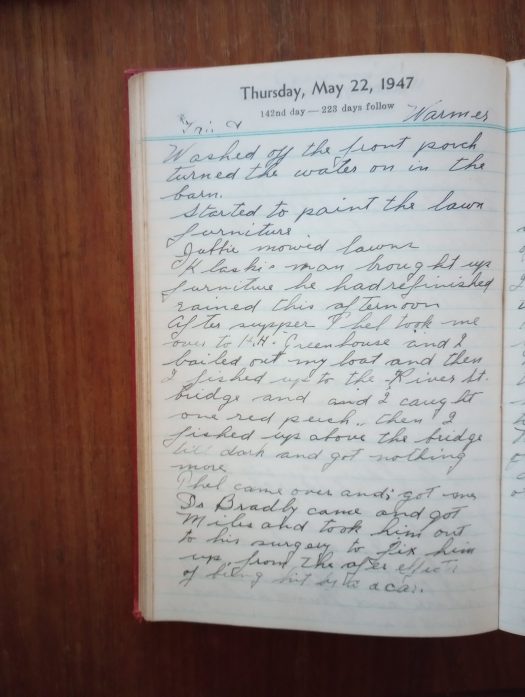 Thursday, May 22, 1947
142nd day — 223 days follow
Warmer
Washed off the front porch
turned the water on in the
barn.
Started to paint the lawn
furniture
mowed lawns
man brought up
furniture he had refinished
rained this afternoon
After supper Phel took me
over to H.H. Greenhouse and I
bailed out my boat and then
I fished up to the River St.
bridge and and I caught
one red perch. then I
fished up above the bridge
till dark and got nothing
more
Phel came over and got me
Dr Bradly came and got
Miles and took him out
to his surgery to fix him
up, from the after effects
of being hit by a car.